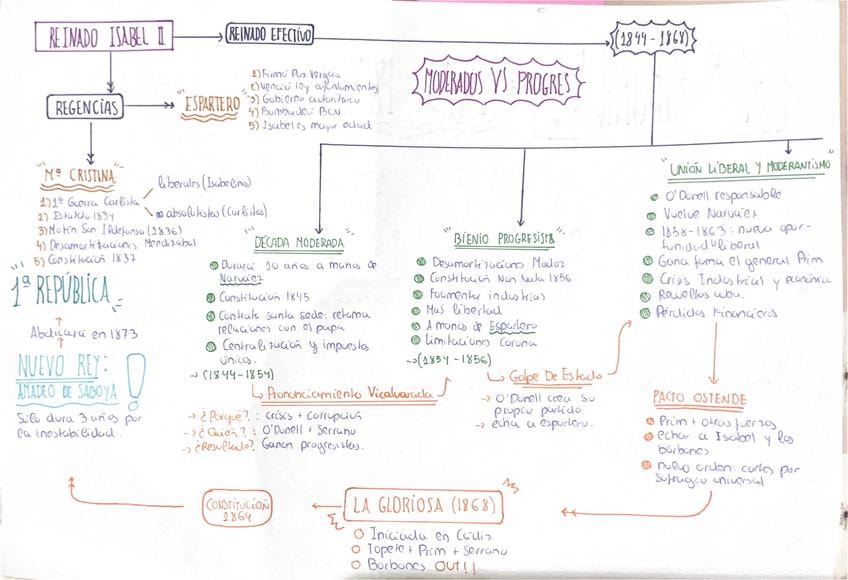 REINADO ISABEL II
REINADO EFECTIVO
(1844-1868)
MODERADOS VS PROGRES
REGENCIAS
"ESPARTERO"
1) Firma Paz Vergara
2) Venció ley ayuntamientos
3) Gobierno autoritario
4) Bombardeo BCN
5) Isabel es mayor edad
"Mª CRISTINA"
1) 1ª Guerra Carlista
liberales (Isabelinos)
absolutistas (Carlistas)
2) Estatuto 1834
3) Motín San Ildefonso (1836)
4) Desamortizaciones Mendizabal
5) Constitución 1837
"DÉCADA MODERADA"
Durará 10 años a manos de
Narváez
Constitución 1845
Contrato santa sede: retoma
relaciones con el papa
Centralización y impuestos
únicos.
→ (1844-1854)
Pronunciamiento Vicalvarada
→ ¿Porqué?: crisis + corrupción
→ ¿Quién?: O'Donell + Serrano
→ ¿Resultado? Ganan progresistas.
"BIENIO PROGRESISTA"
Desamortizaciones Madoz
Constitución Non Nata 1856
Fomentar industrias
Mas libertad
A manos de Espartero
Limitaciones Corona
→ (1854-1856)
Golpe De Estado
→ O'Donell crea su
propio partido.
→ echa a espartero.
"UNIÓN LIBERAL Y MODERANTISMO"
O'Donell responsable
Vuelve Narváez
1858-1863: nueva opor-
tunidad u.liberal
Gana fama el general Prim
Crisis Industrial y económica
Revueltas
Pérdidas Financieras
PACTO OSTENDE
Prim + otras fuerzas
echar a Isabel y los
borbones
nuevo orden: cortes por
sufragio universal
LA GLORIOSA (1868)
Iniciada en Cádiz
Topete + Prim + Serrano
Borbones OUT!!
CONSTITUCIÓN
1869
1ª REPÚBLICA
Abdicará en 1873
NUEVO REY:
AMADEO DE SABOYA
Sólo dura 3 años por
la inestabilidad.